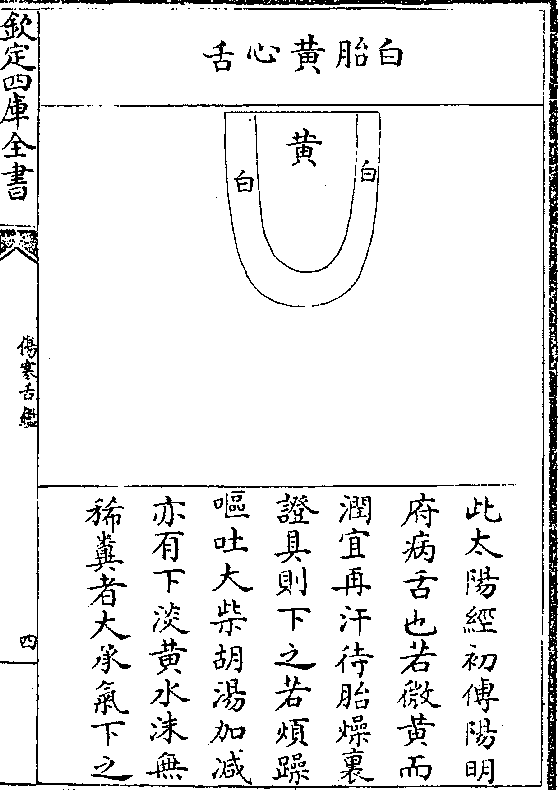 白胎黄心舌
黄
白
白
此太陽經初傳陽明
府病舌也若微黄而
潤宜再汗待胎燥裏
證具則下之若煩躁
嘔吐大柴胡湯加減
亦有下淡黄水沫無
稀糞者大承氣下之
欽定四庫全書
傷寒舌鑑
四